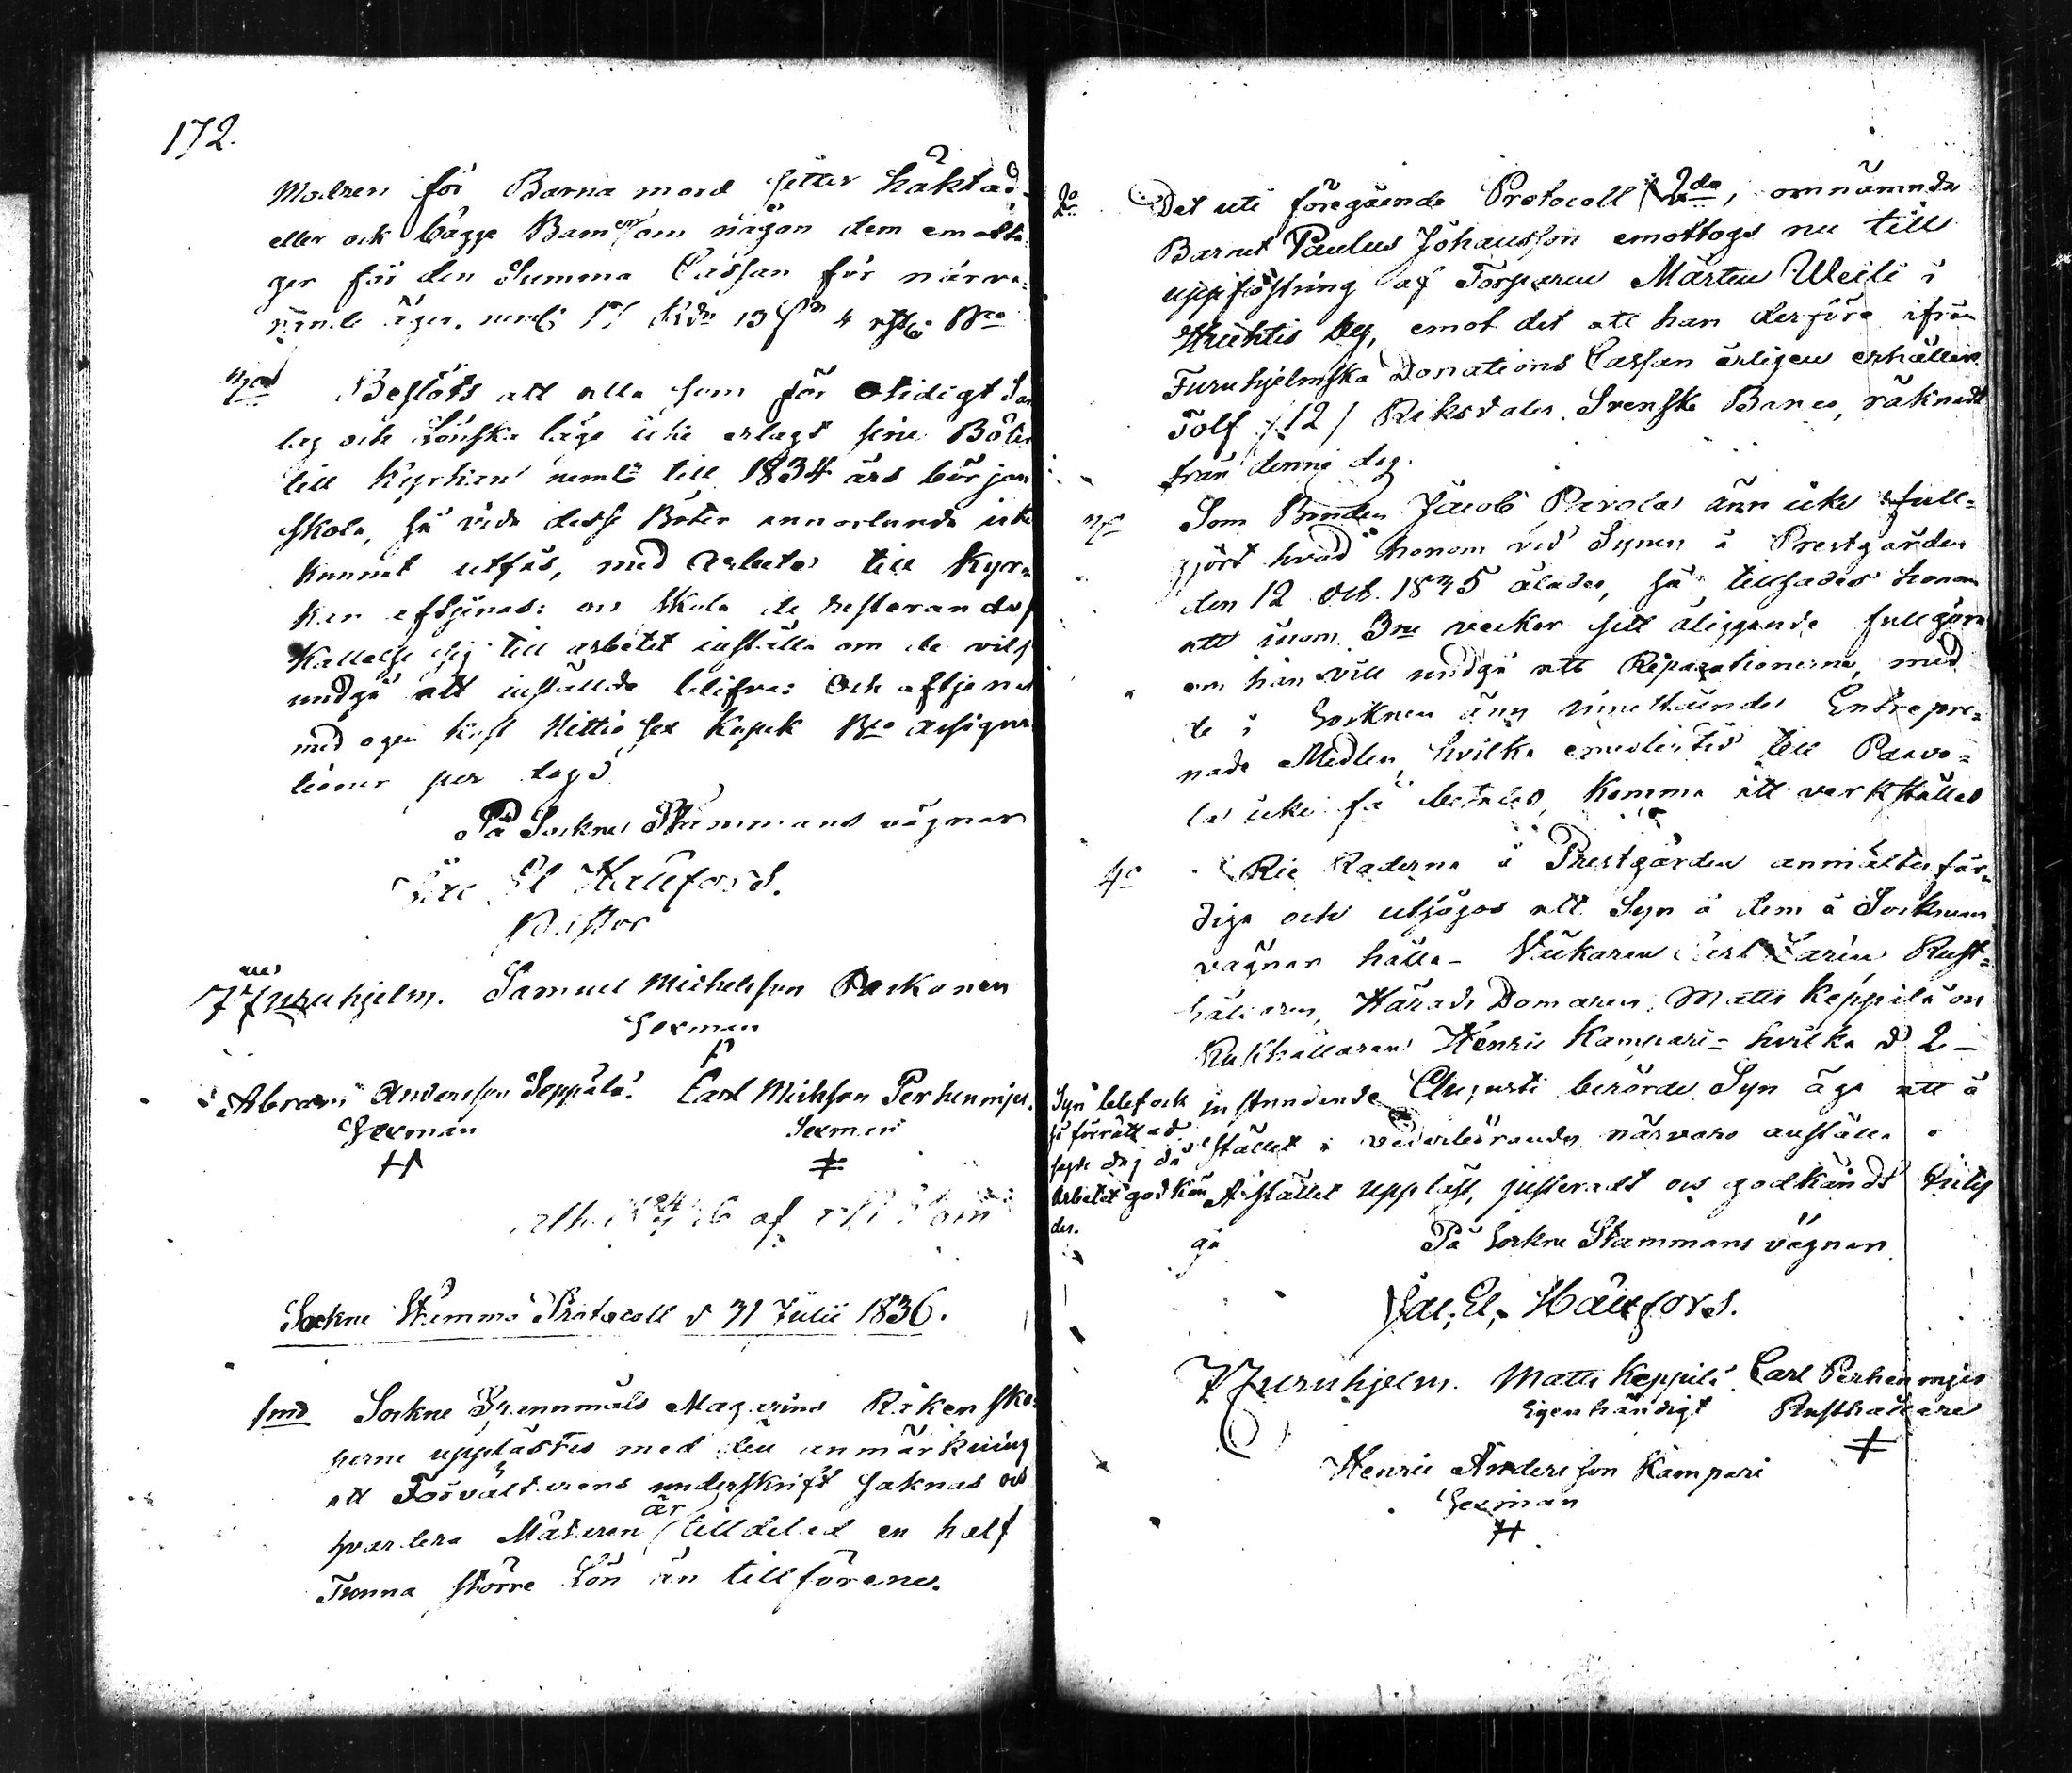 172.
Modren för Barna mord sitter häktad
eller ock bägge Barnen om någon dem emotta
ger för den Summa Cassan för närva=
rande äger. neml: 17 Rdr 13 4 Bco
Beslöts att alla som för otidigt Sän
lag och Lönska läge icke erlagt sine Böter
till Kyrkan neml: till 1834 års början
skola, så vida desse Böter annorlunda icke
kunnat utfås, med arbete till Kyr=
kan aftjenas: och skola de resterande
Kallelse sig till arbetet inställa om de vilja
undgå att inställde blifva: Och aftjenas
med egen kost Nittio sex Kopek Bco Assigna
tioner per dag
På Sockne Stämmans vägnar
Jac. El. Hällfors.
Pastor
Furuhjelm. Samuel Michelsson Paskonen
Sexman
Abram Andersson Seppälä. Carl Michsson Perhenmies.
Sexman Sexman
af
Sockne Stämmo Protocoll d 31 Julii 1836.
1mo Sockne Spannmåls Magazins Räkenska
perne upplästes med den anmärkning
att Förvaltarens underskrift saknas och
hvarlera Mätaren är tilldelad en half
Tunna större Lön än tillförene.
2o Det uti föregående Protocoll 2da, omnämnda
Barnet Paulus Johansson emottogs nu till
uppfostring af Torparen Mårten Weili i
Huhtis by, emot det att han derföre ifrån
Furuhjelmska Donations Cassan årligen erhåller
Tolf /12/ Riksdaler Svenske Banco, räknadt
från denna dag.
Som Bonden Jacob Parola änn icke full=
gjort hvad honom vid Synen å Prestgården
den 12 Oct. 1835 ålades, så tillsades honom
att inom 3ne veckor sitt åliggande fullgöra
om han vill undgå att Reparationerna, med
de i Socknen änn innestående Entrepre=
nade Medlen, hvilka emedlertid till Parvo=
la icke få betalas, komma att verkställas
4o Rie Raderne å Prestgården anmältes fär=
dige och utsågos att Syn å dem å Socknens
vägnar hålla - Vickarien Carl Zarin Rust=
hållaren, Härads Domaren Matts Keppilä och
Rusthållaren Henric Kampari - hvilka d 2 -
instundande Augusti berörde Syn äga att å
Stället i vederbörandes närvaro anställa
Syn blef ock
så förrättad
sagde dag då
Arbetet godkän
des.
A stället uppläst, justeradt och godkändt
På Sockne Stämmans vägnar
Jac. El. Hällfors.
Furuhjelm. Matts Keppilä Carl Perhenmies
Egenhändigt Rusthållare
Henric Andersson Kampari
Sexman